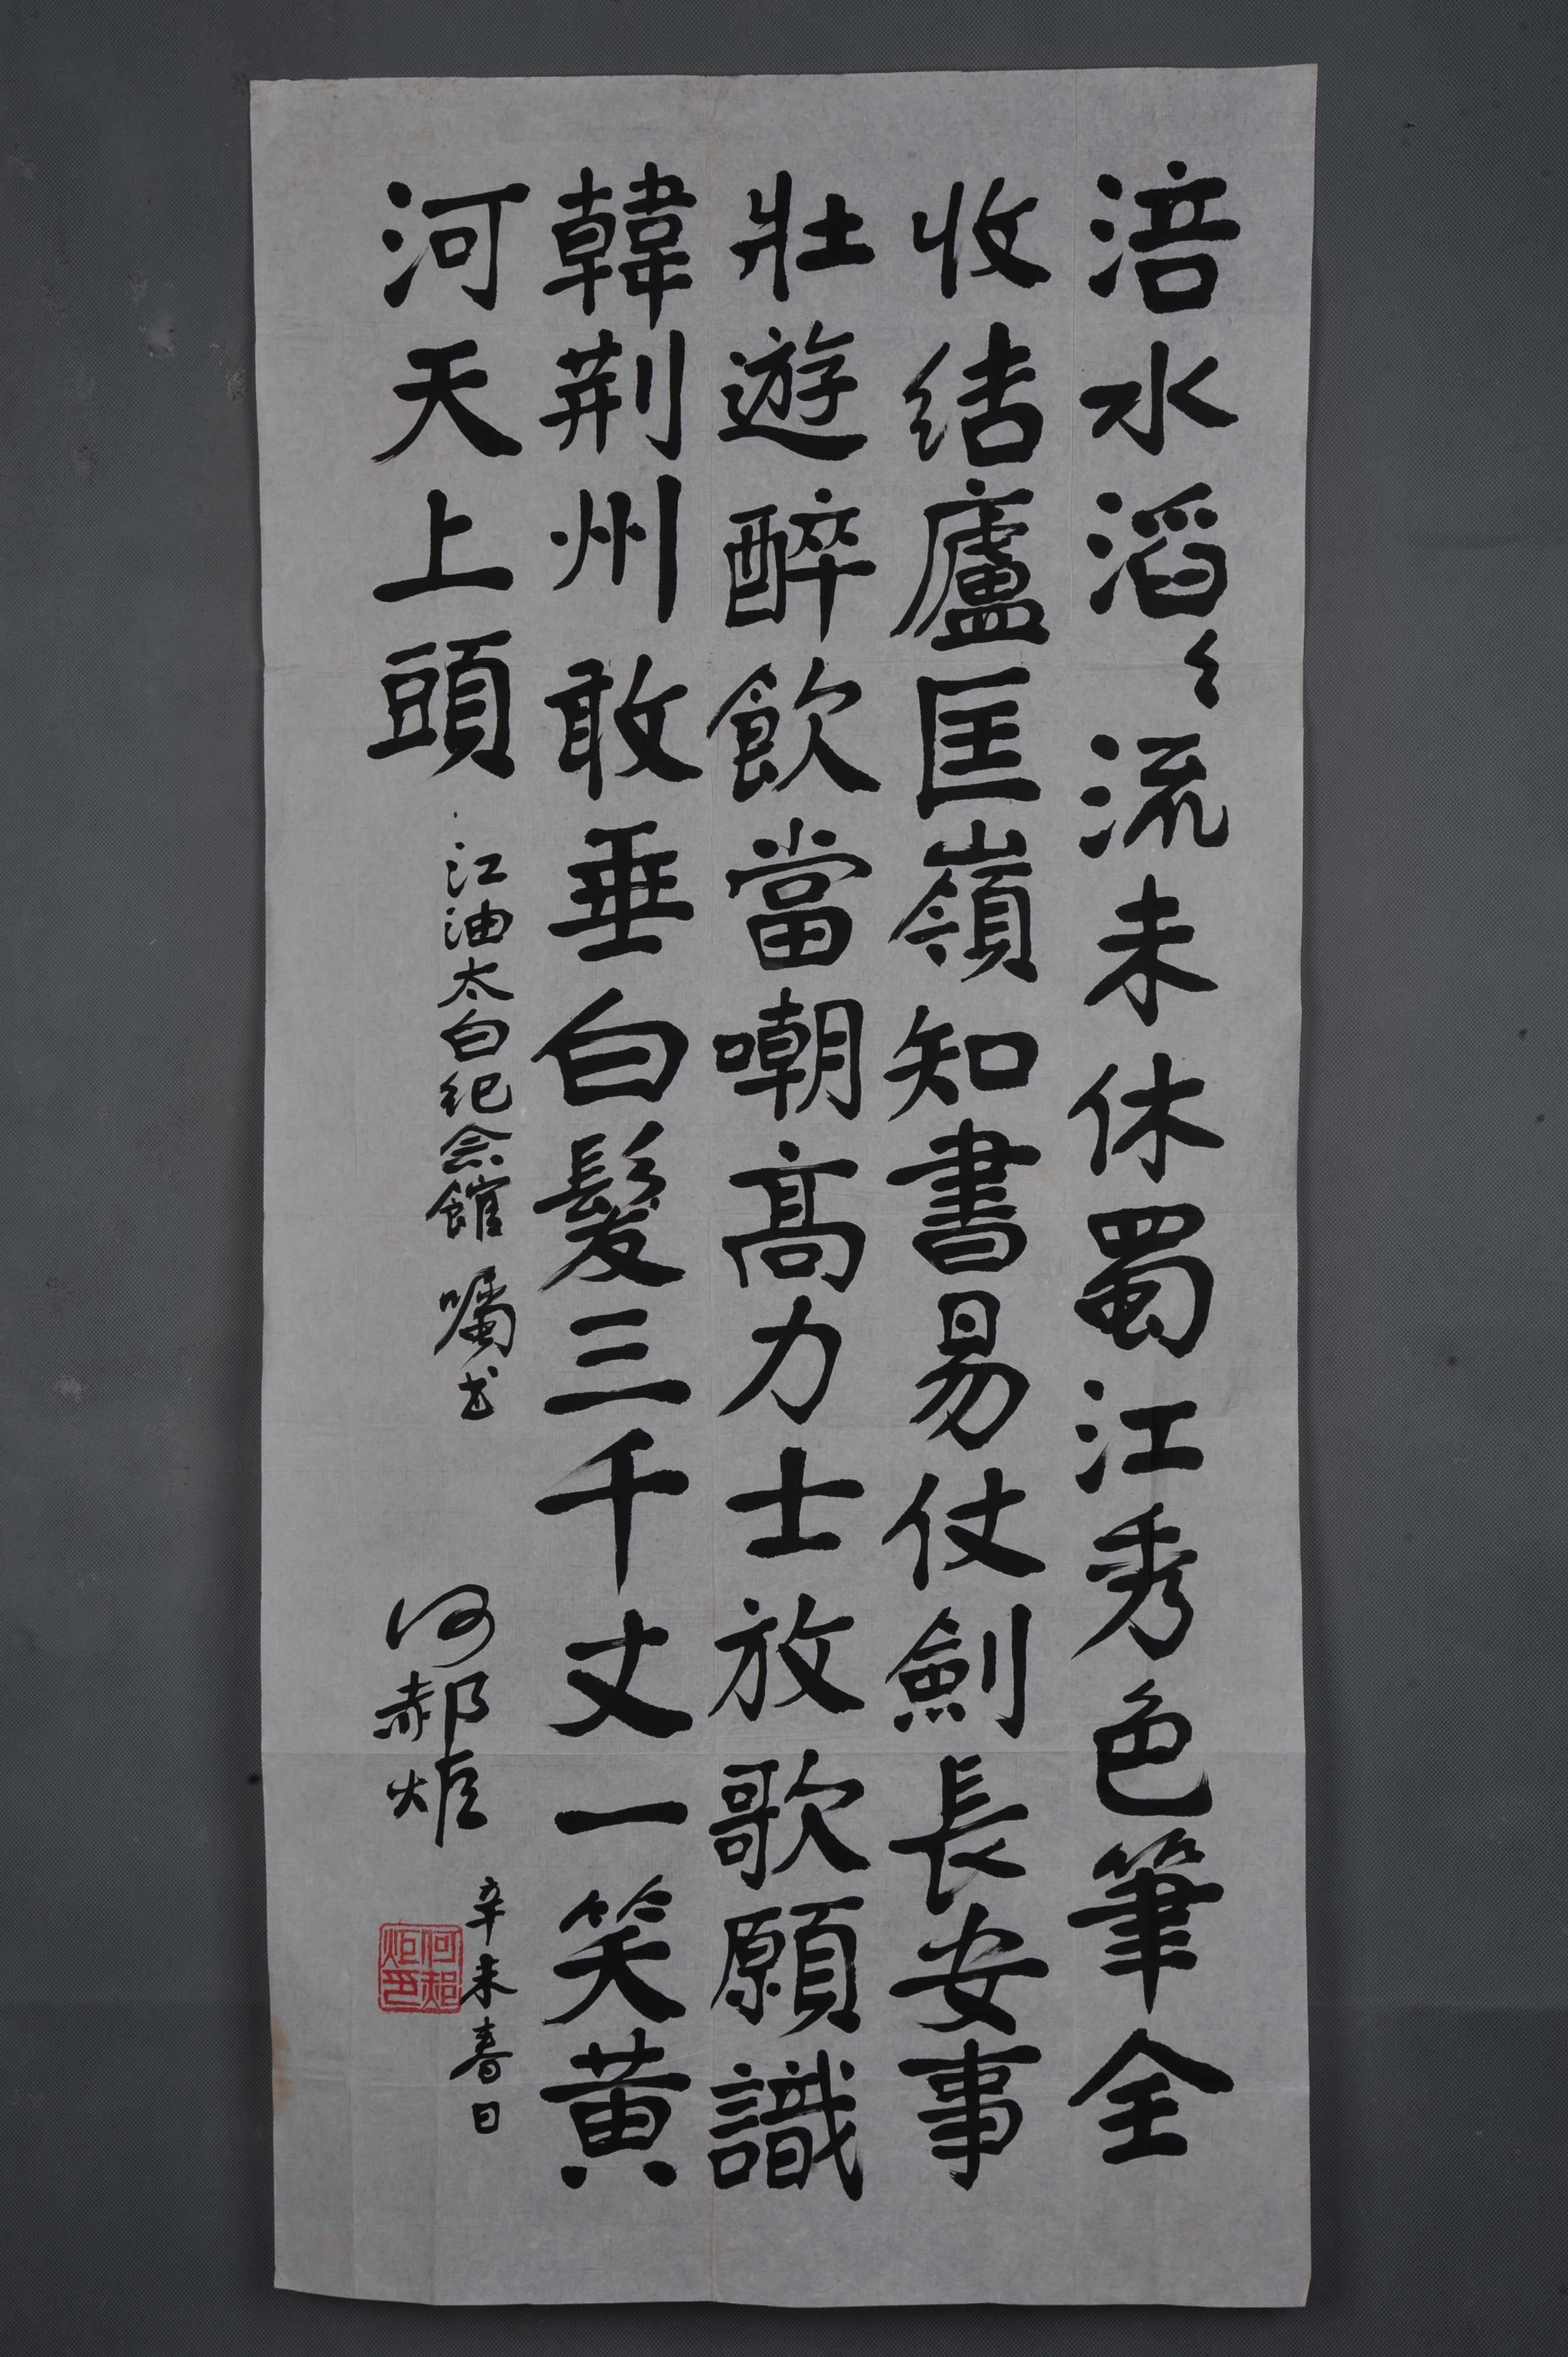 涪水滔々流未休蜀江秀色筆全
收結廬匡嶺知書易仗劍長安事
壯遊醉飲當嘲高力士放歌願識
韓荆州敢垂白髮三千丈一笑黃
河天上頭
江油太白纪念館 囑书
何郝炬
辛未春日
何郝炬印